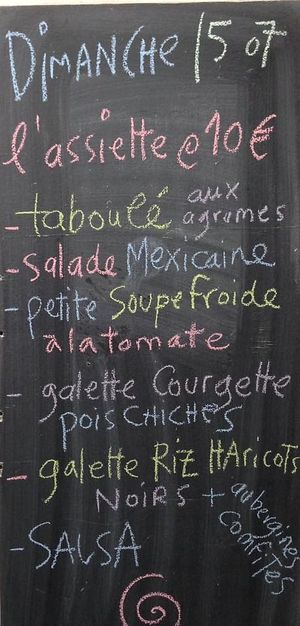 DIMANCHE 15 07
l'assiette @ 10€
- taboulé aux agrumes
- salade Mexicaine
- petite Soupe froide
à la tomate
- galette Courgette
pois CHICHES
- galette Riz HAricots
NOIRS + aubergines confites
- SALSA